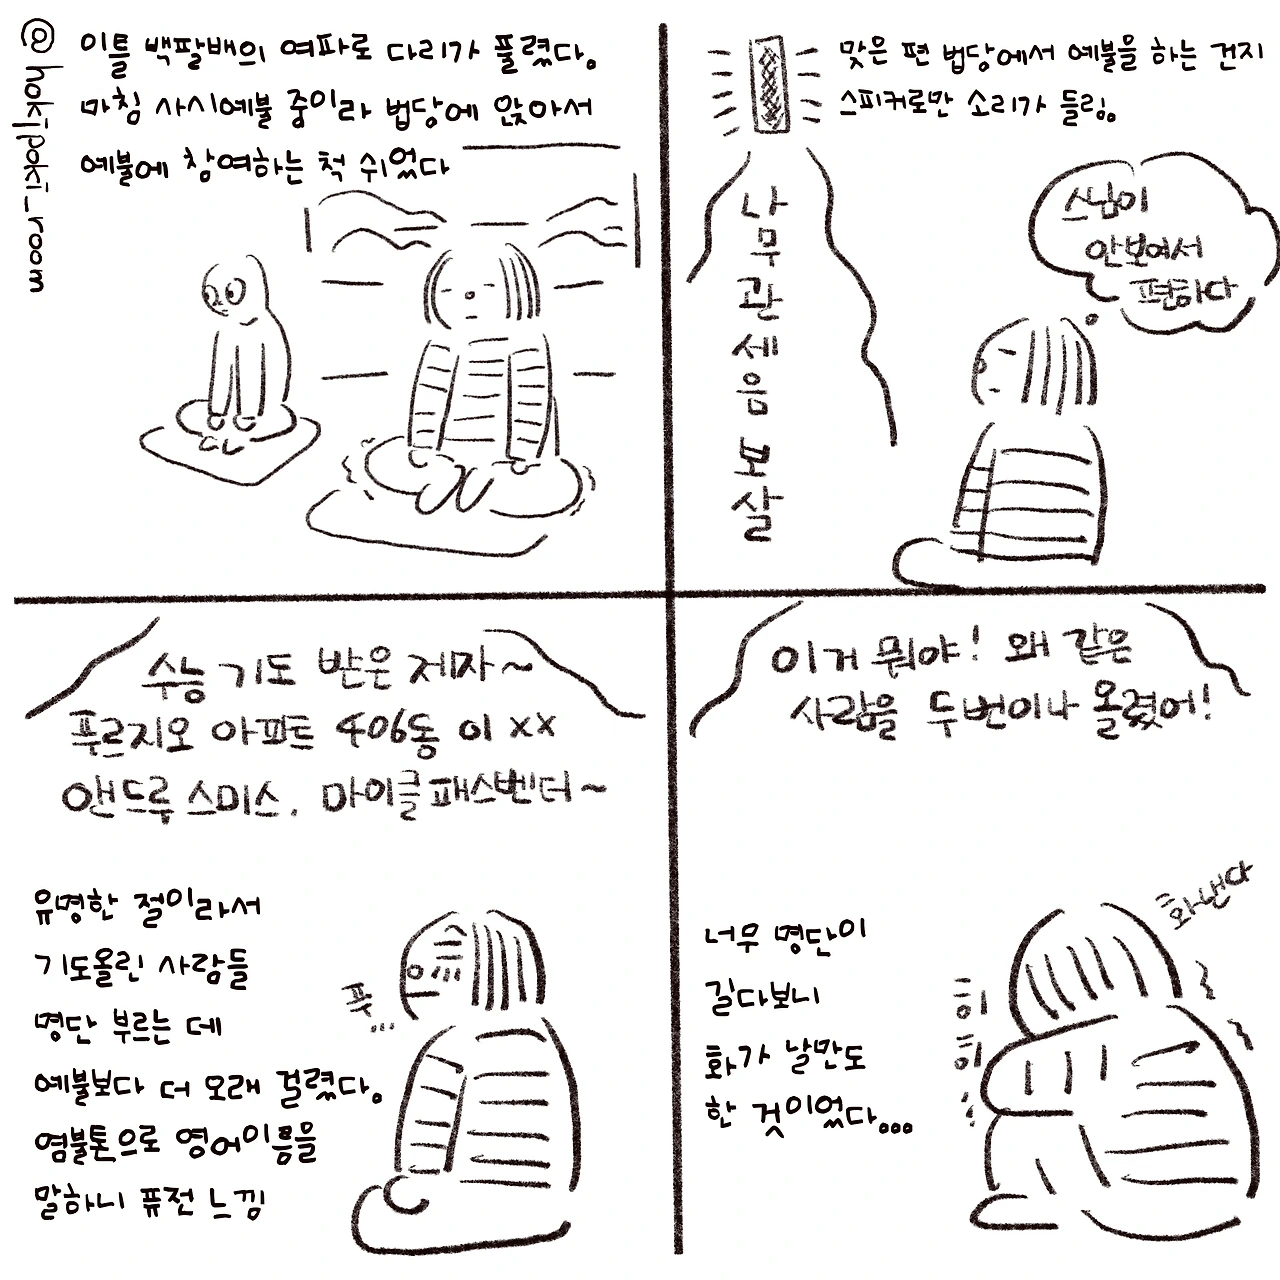 @hokipoki_room
이틀 백팔배의 여파로 다리가 풀렸다.
마침 사시예불 중이라 법당에 앉아서
예불에 참여하는 척 쉬었다
맞은 편 법당에서 예불을 하는 건지
스피커로만 소리가 들림.
나무관세음보살
스님이
안보여서
편하다
수능 기도 받은 제자~
푸르지오 아파트 406동 이xx
앤드루 스미스, 마이클 패스벤더~
유명한 절이라서
기도올린 사람들
명단 부르는 데
예불보다 더 오래 걸렸다.
염불톤으로 영어이름을
말하니 퓨전 느낌
푸...
이거 뭐야! 왜 같은
사람을 두번이나 올렸어!
너무 명단이
길다보니
화가 날만도
한 것이었다...
화낸다
히
히